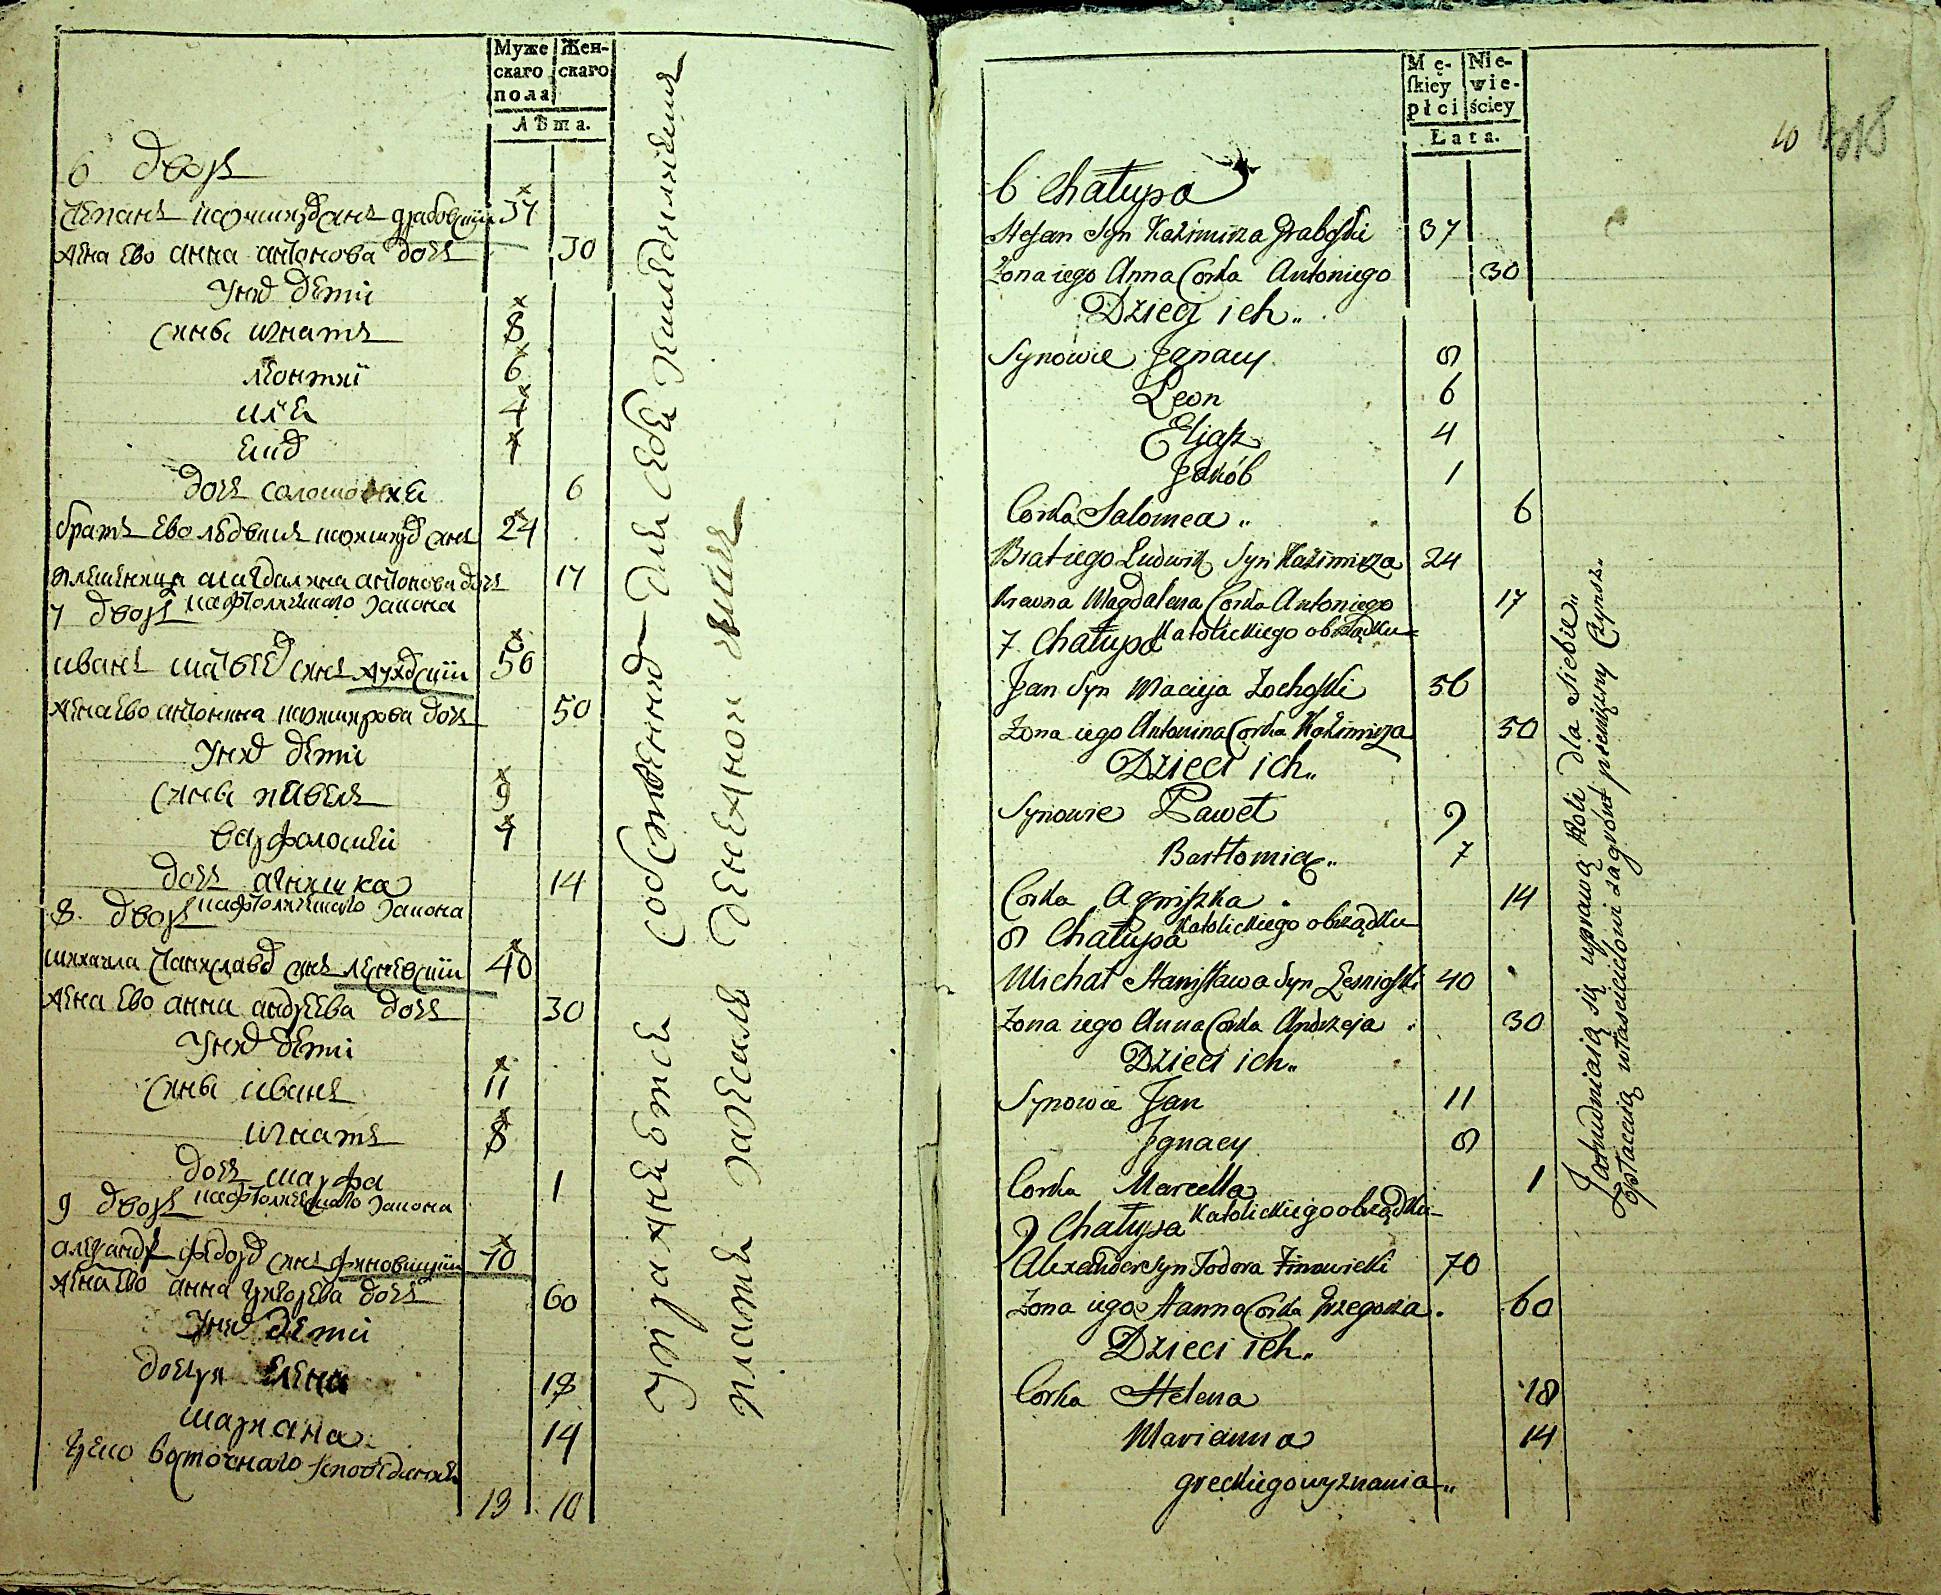 Муже
скаго
пола
Жен-
скаго
Лѣта.
6 дворъ
степанъ казимиров сынъ грабовскии 37
жена ево анна антонова дочь 30
у них дети
сыны игнатъ 8
леонтии 6
илья 4
яков 1
дочь саломея 6
братъ ево людвикъ казимиров сынъ 24
племеница магдалина антонова дочь 17
7 дворъ католицкаго закона
иванъ матвеев сынъ жуховскии 56
жена ево антонина казимирова дочь 50
у них дети
сыны павелъ 9
варфоломеи 7
дочь агнишка 14
8 дворъ католицкаго закона
михаила станиславов сынъ леневскии 40
жена ево анна андреева дочь 30
у них дети
сыны иванъ 11
игнатъ 8
дочь марфа 1
9 дворъ католицкаго закона
александръ федоров сынъ финовицкии 70
жена ево анна григорева дочь 60
у них дети
дочеря елена 18
марiана 14
греко восточнаго исповедания
13 10
упражняются собственною для себя хлебопашеством
платя за землю денежной чиншъ
Mę-
skiey
płci
Nie-
wie-
ściey
Lata.
10
318
6 Chałupa
Stefan Syn Kaźimirza Grabofski 37
Żona iego Anna Corka Antoniego 30
Dzieci ich„
Synowie Jgnacy 8
Leon 6
Eliasz 4
Jakób 1
Corka Salomea„ 6
Brat iego Ludwik Syn Kaźimirza 24
Krewna Magdalena Corka Antoniego 17
7 Chałupa Katolickiego obrządku
Jan Syn Macieja Zochofski 56
Żona iego Antonina Corka Kaźimirza 50
Dzieci ich„
Synowie Paweł 9
Bartłomiej„ 7
Corka Agniszka 14
8 Chałupa Katolickiego obrządku
Michał Stanisława Syn Lesniofski 40
Żona iego Anna Corka Andrzeja 30
Dzieci ich„
Synowie Jan 11
Jgnacy 8
Corka Marcella 1
9 Chałupa Katolickiego obrządku
Alexander Syn Fodora Finowicki 70
Żona iego Hanna Corka Grzegorza 60
Dzieci ich„
Corka Helena 18
Marianna 14
greckiego wyznania„
Zatrudniaią się uprawą Roli dla siebie„
opłacaią własicielowi za grónt pienięzny Czynsz„